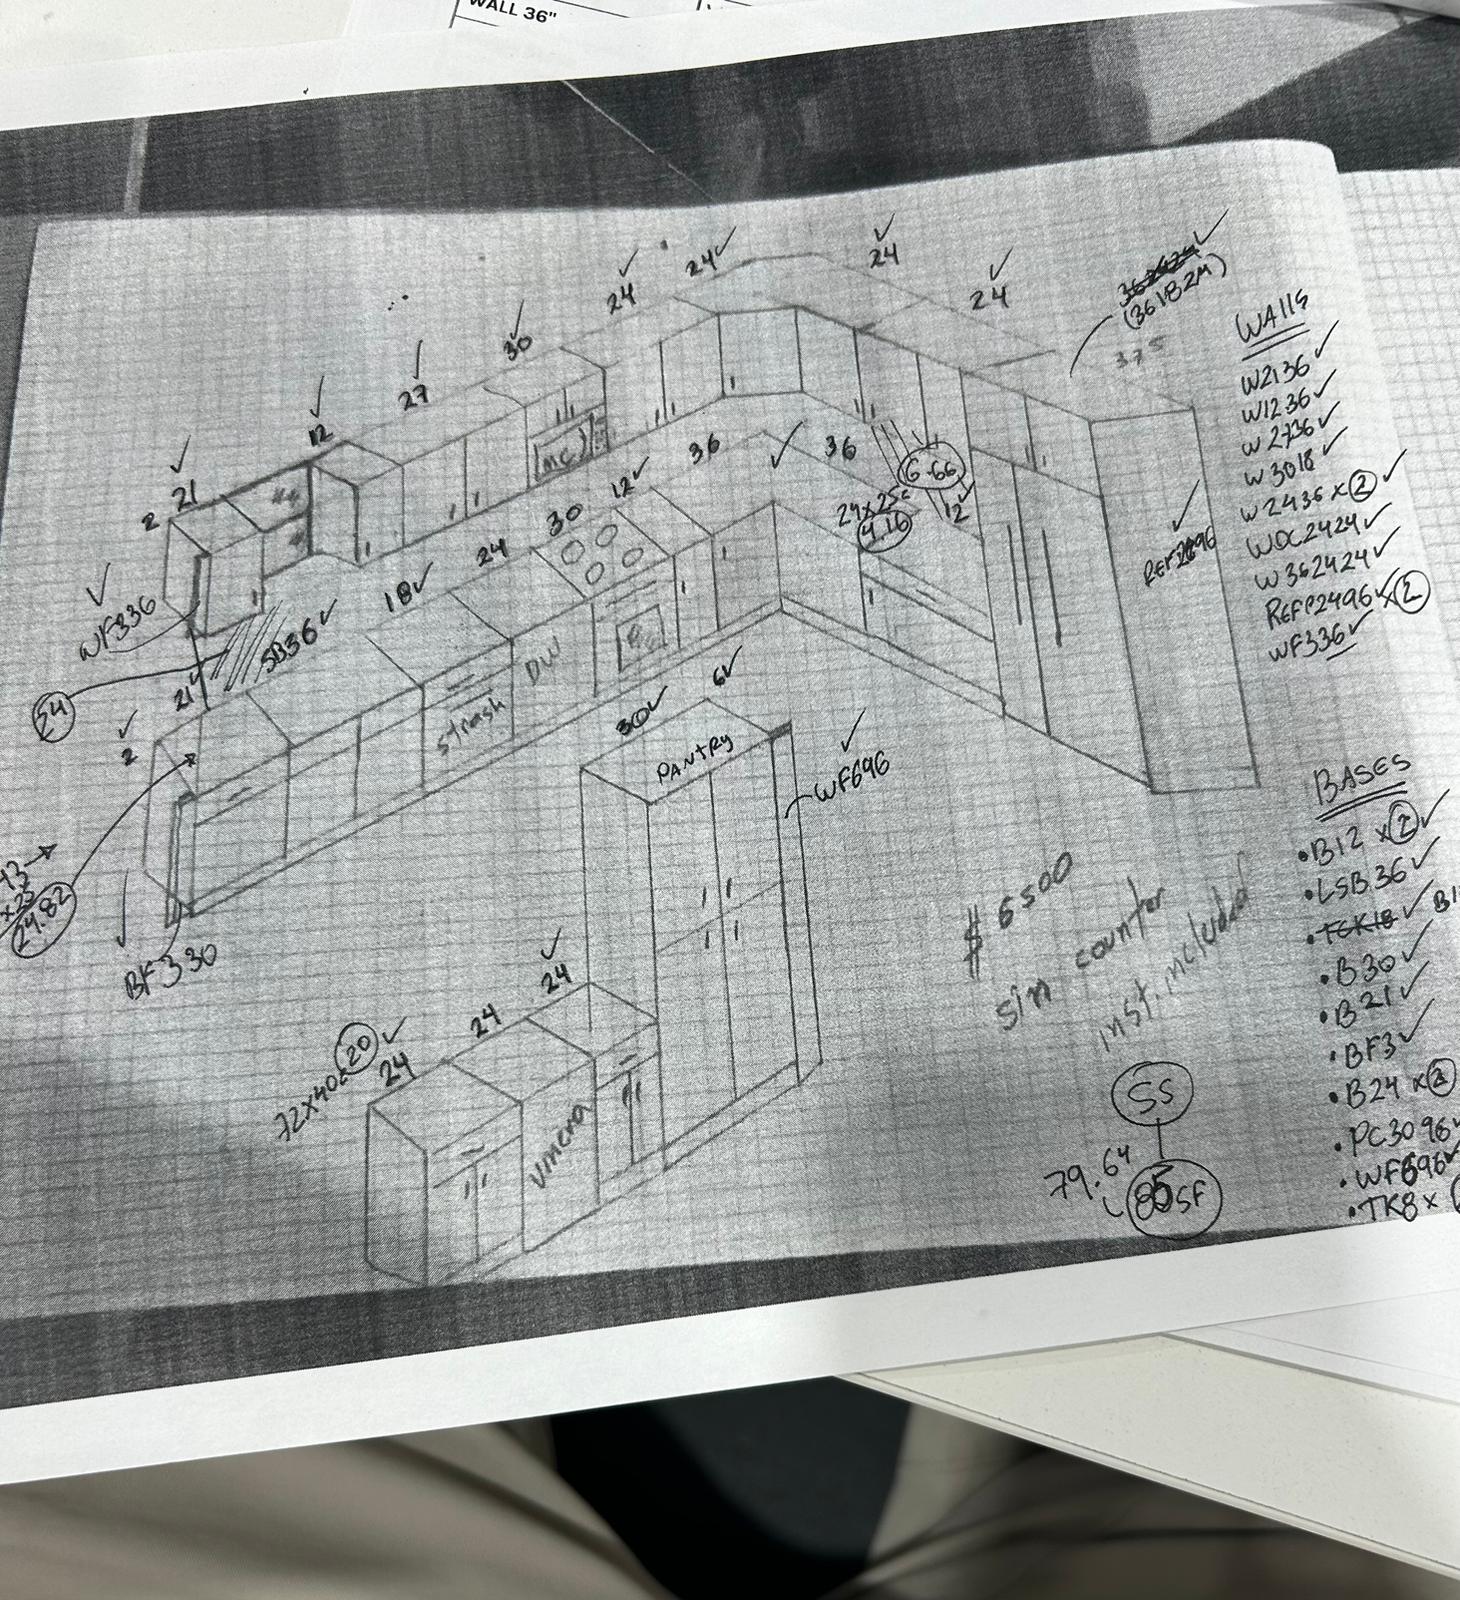 WALL 36"
24
24
24
24
30
27
12
21
2
(3618 2M)
375
MC
WF336
54
SB36
18
24
30
12
36
36
6.66
24x25=
4.16
12
21
2
Strash
DW
BF330
x23
24.82
30
6
PANTRY
WF696
72x40=20
24
24
24
Vinera
$ 6500
sin counter
inst. included
SS
79.64
85SF
WALLS
W2136
W1236
W2736
W3018
W2436 x 2
WDC2424
W362424
REFP2496 x 2
WF336
BASES
• B12 x 2
• LSB36
• B30
• B21
• BF3
• B24 x 2
• PC3096
• WF696
• TK8 x